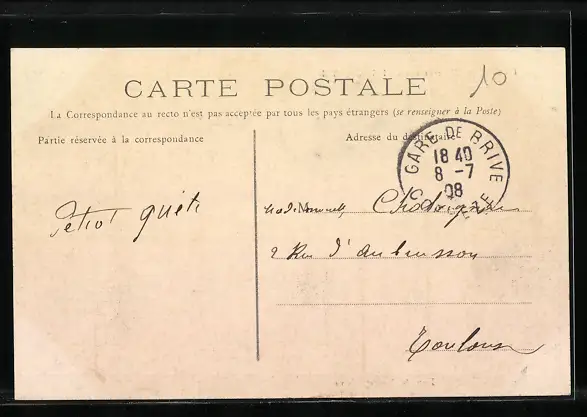 CARTE POSTALE
10
La Correspondance au recto n'est pas acceptée par tous les pays étrangers (se renseigner à la Poste)
Partie réservée à la correspondance
Adresse du destinataire
GARE DE BRIVE
18 40
8 -7
08
2 Rue d'aubusson
Toulouse